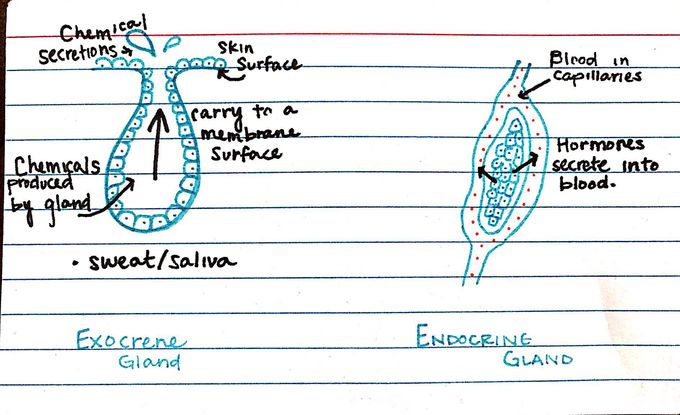 Chemical
secretions
Skin
Surface
carry to a
membrane
Surface
Chemicals
produced
by gland
• sweat/saliva
Exocrene
Gland
Blood in
capillaries
Hormones
secrete into
blood.
ENDOCRINE
GLAND